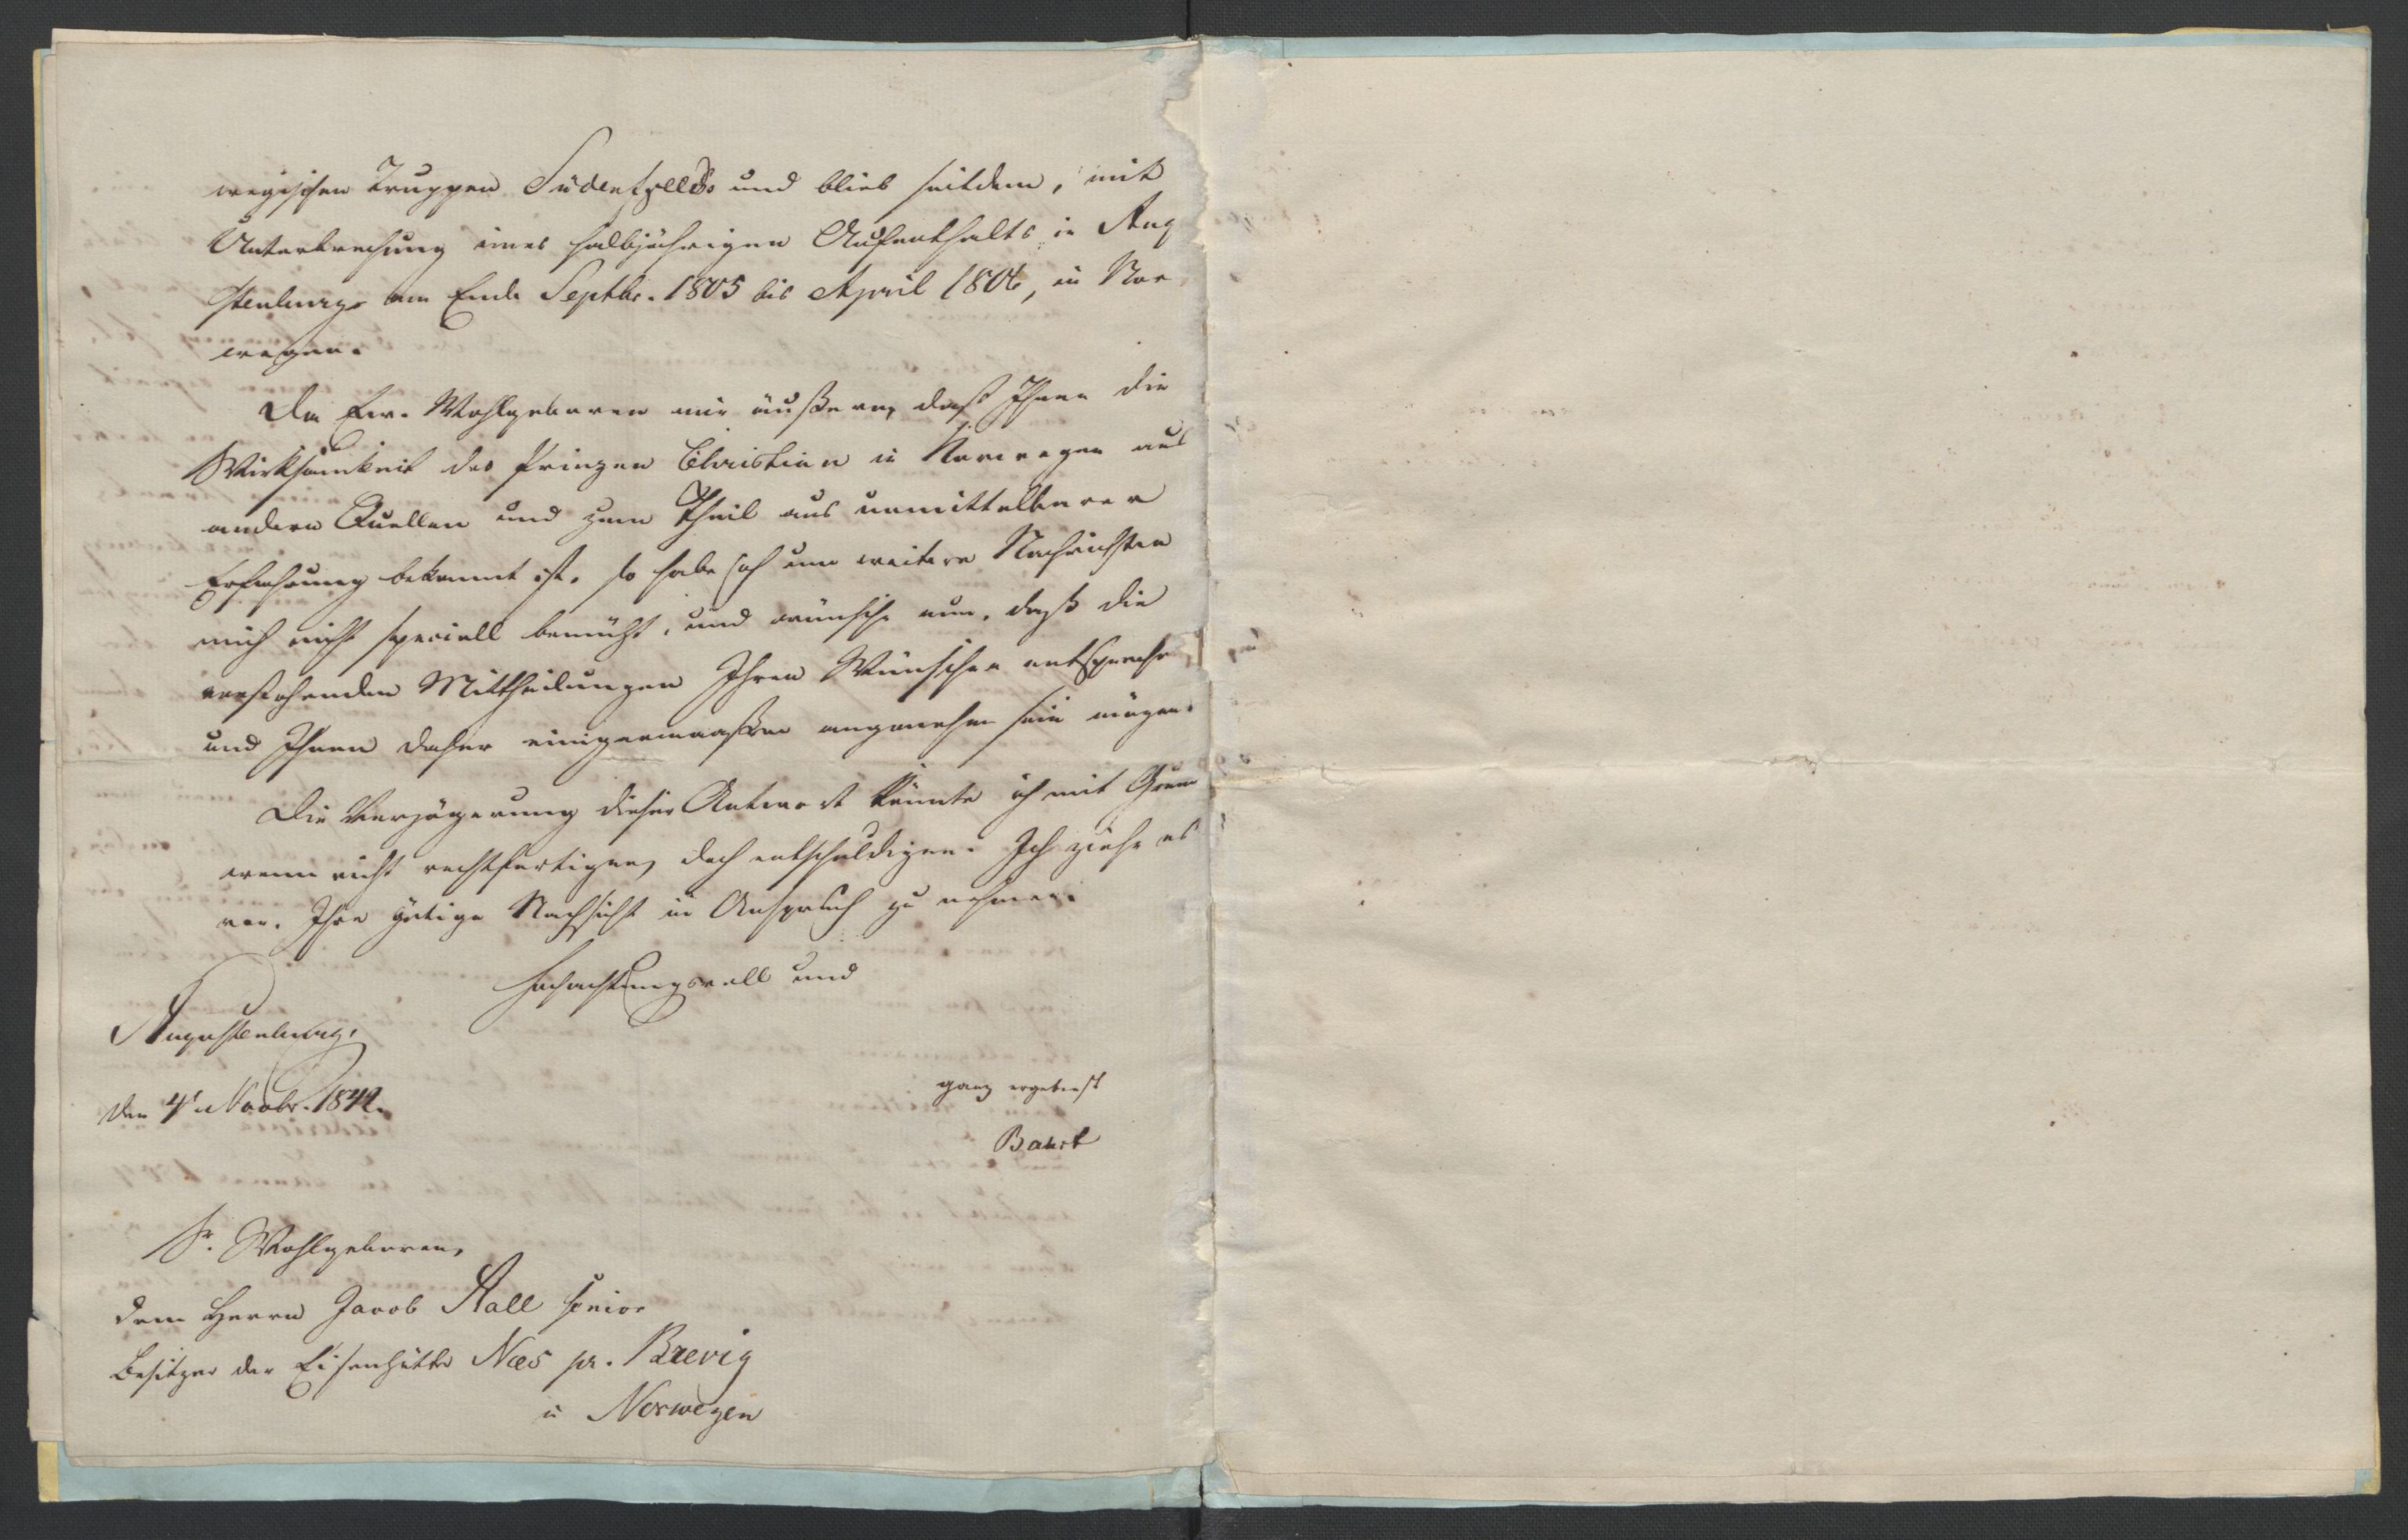 wegischen Truppen Südenfjelds und blieb seitdem, mit
Unterbrechung eines halbjährigen Aufenthalts in Aug
stenburg am Ende Septbr. 1805 bis April 1806, in Nor
wegen.
Da Ew. Wohlgeboren mir äußern, daß Ihnen die
Wirksamkeit des Prinzen Christian in Norwegen aus
andern Quellen und zum Theil aus unmittelbarer
Erfahrung bekannt ist, so habe ich um weitere Nachrichten
mich nicht speciell bemüht, und wünsche nun, daß die
vorstehenden Mittheilungen Ihren Wünschen entsprechen
und Ihnen daher einigermaaßen angenehm sein mögen.
Die Verzögerung dieser Antwort könnte ich mit Grund
wenn nicht rechtfertigen, doch entschuldigen. Ich ziehe es
vor, Ihre gütige Nachsicht in Anspruch zu nehmen.
Hochachtungsvoll und
Augustenburg,
den 4n Novbr. 1842.
ganz ergebenst
Bahrt
Sr. Wohlgeboren,
dem Herrn Jacob Aall senior
Besitzer der Eisenhütte Næs pr. Brevig
in Norwegen